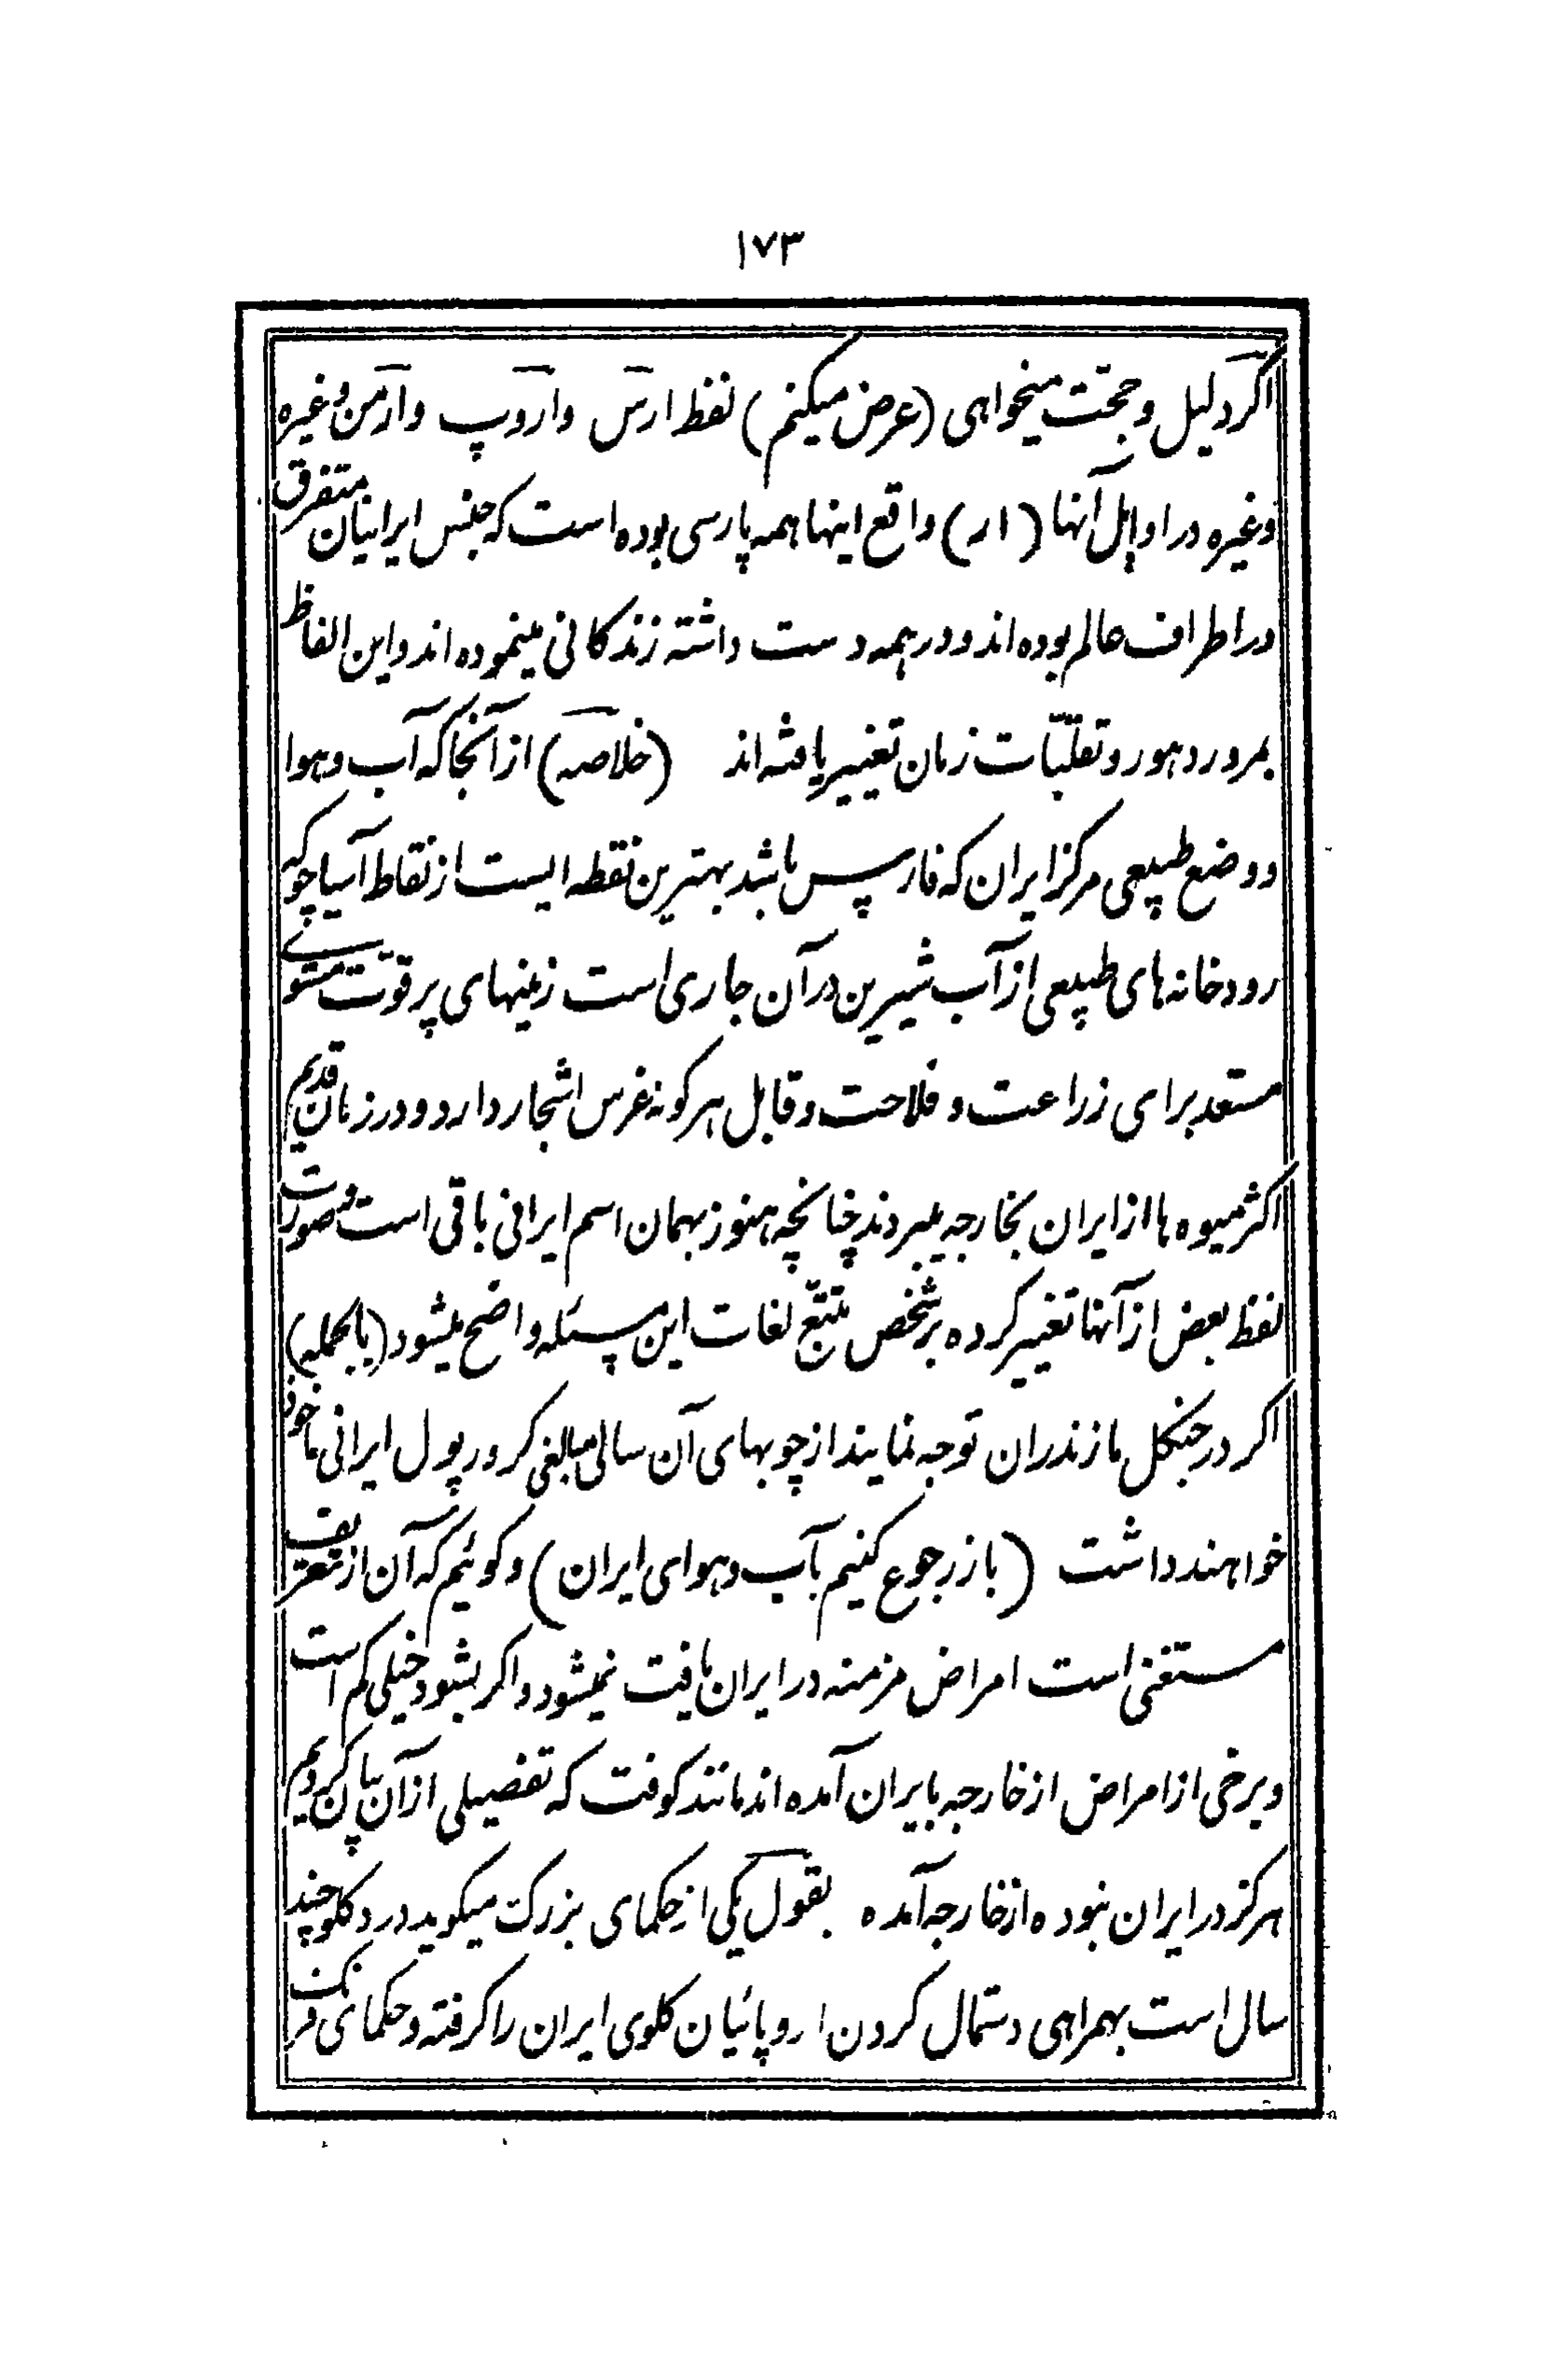 ۱۷۳
اکر دلیل و حجّت میخواهی (عرض میکنم) لفظ ارس واروپ وارمن وغیره
وغیره در اوایل آنها (ار) واقع اینها همه پارسی بوده است که جنس ایرانیان متفرق
در اطراف عالم بوده اند و در همه دست داشته زندکانی مینموده اند و این الفاظ
بمرور دهور و تقلّبات زمان تغییر یافته اند (خلاصه) از آنجا که آب و هوا
و وضع طبیعی مرکز ایران که فارس باشد بهترین نقطه ایست از نقاط آسیا چو که
رودخانه های طبیعی از آب شیرین در آن جاری است زمینهای پر قوت مستوی
مستعد برای زراعت و فلاحت و قابل هر کونه غرس اشجار دارد و در زمان قدیم
اکثر میوه ها از ایران بخارجه میبردند چنانچه هنوز بهمان اسم ایرانی باقی است و صورت
لفظ بعض از آنها تغییر کرده بر شخص متتبّع لغات این مسئله واضح میشود (بالجمله)
اکر در جنکل مازندران توجه نمایند از چوبهای آن سالی مبالغی کرور پول ایرانی ماخوذ
خواهند داشت (باز رجوع کنیم بآب و هوای ایران) و کوئیم که آن از تعریف
مستغنی است امراض مزمنه در ایران یافت نمیشود و اکر بشود خیلی کم است
و برخی از امراض از خارجه بایران آمده اند مانند کوفت که تفصیلی از آن بیان کردیم
هرکز در ایران نبوده از خارجه آمده بقول یکی از حکمای بزرک میکوید درد کلو چند
سال است بهمراهی دستمال کردن اروپائیان کلوی ایران را کرفته و حکمای فرنک